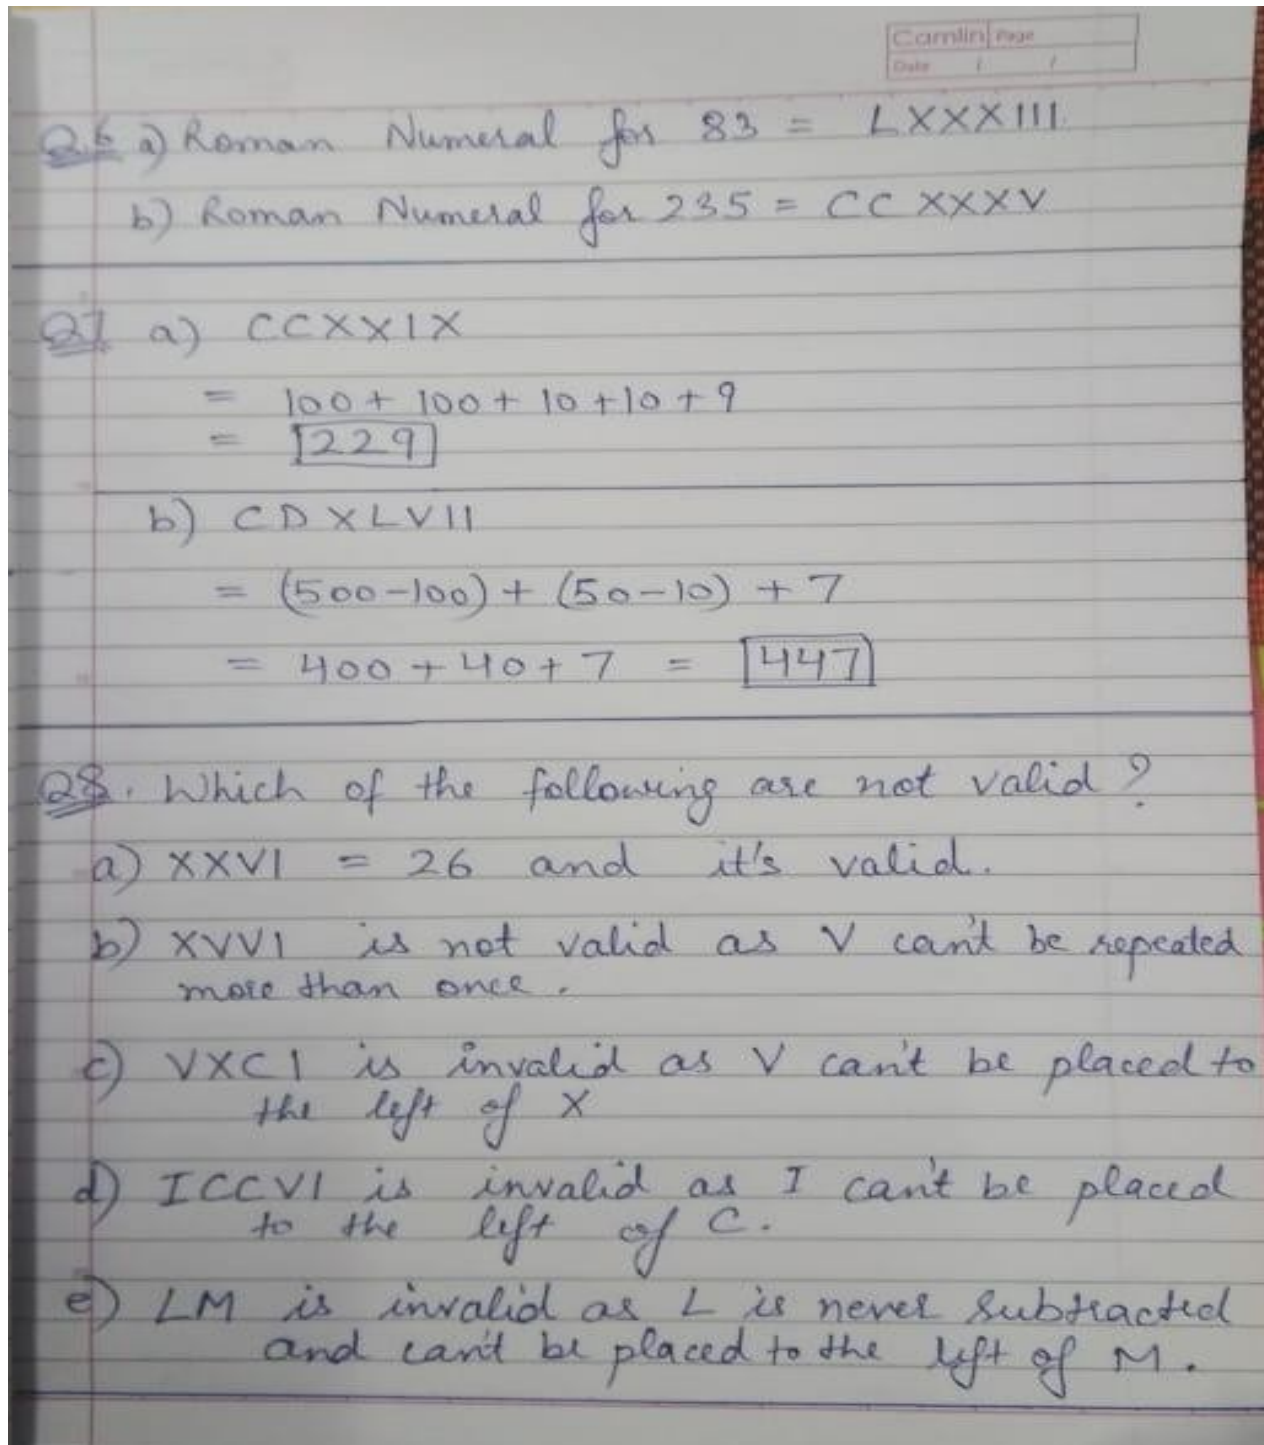 Camlin Page
Date / /
Q.6 a) Roman Numeral for 83 = LXXXIII.
b) Roman Numeral for 235 = CC XXXV
Q7 a) CCXXIX
= 100 + 100 + 10 + 10 + 9
= 229
b) CD XLVII
= (500-100) + (50-10) + 7
= 400 + 40 + 7 = 447
Q8. Which of the following are not valid?
a) XXVI = 26 and it's valid.
b) XVVI is not valid as V can't be repeated
more than once.
c) VXCI is invalid as V can't be placed to
the left of X
d) ICCVI is invalid as I can't be placed
to the left of C.
e) LM is invalid as L is never subtracted
and can't be placed to the left of M.